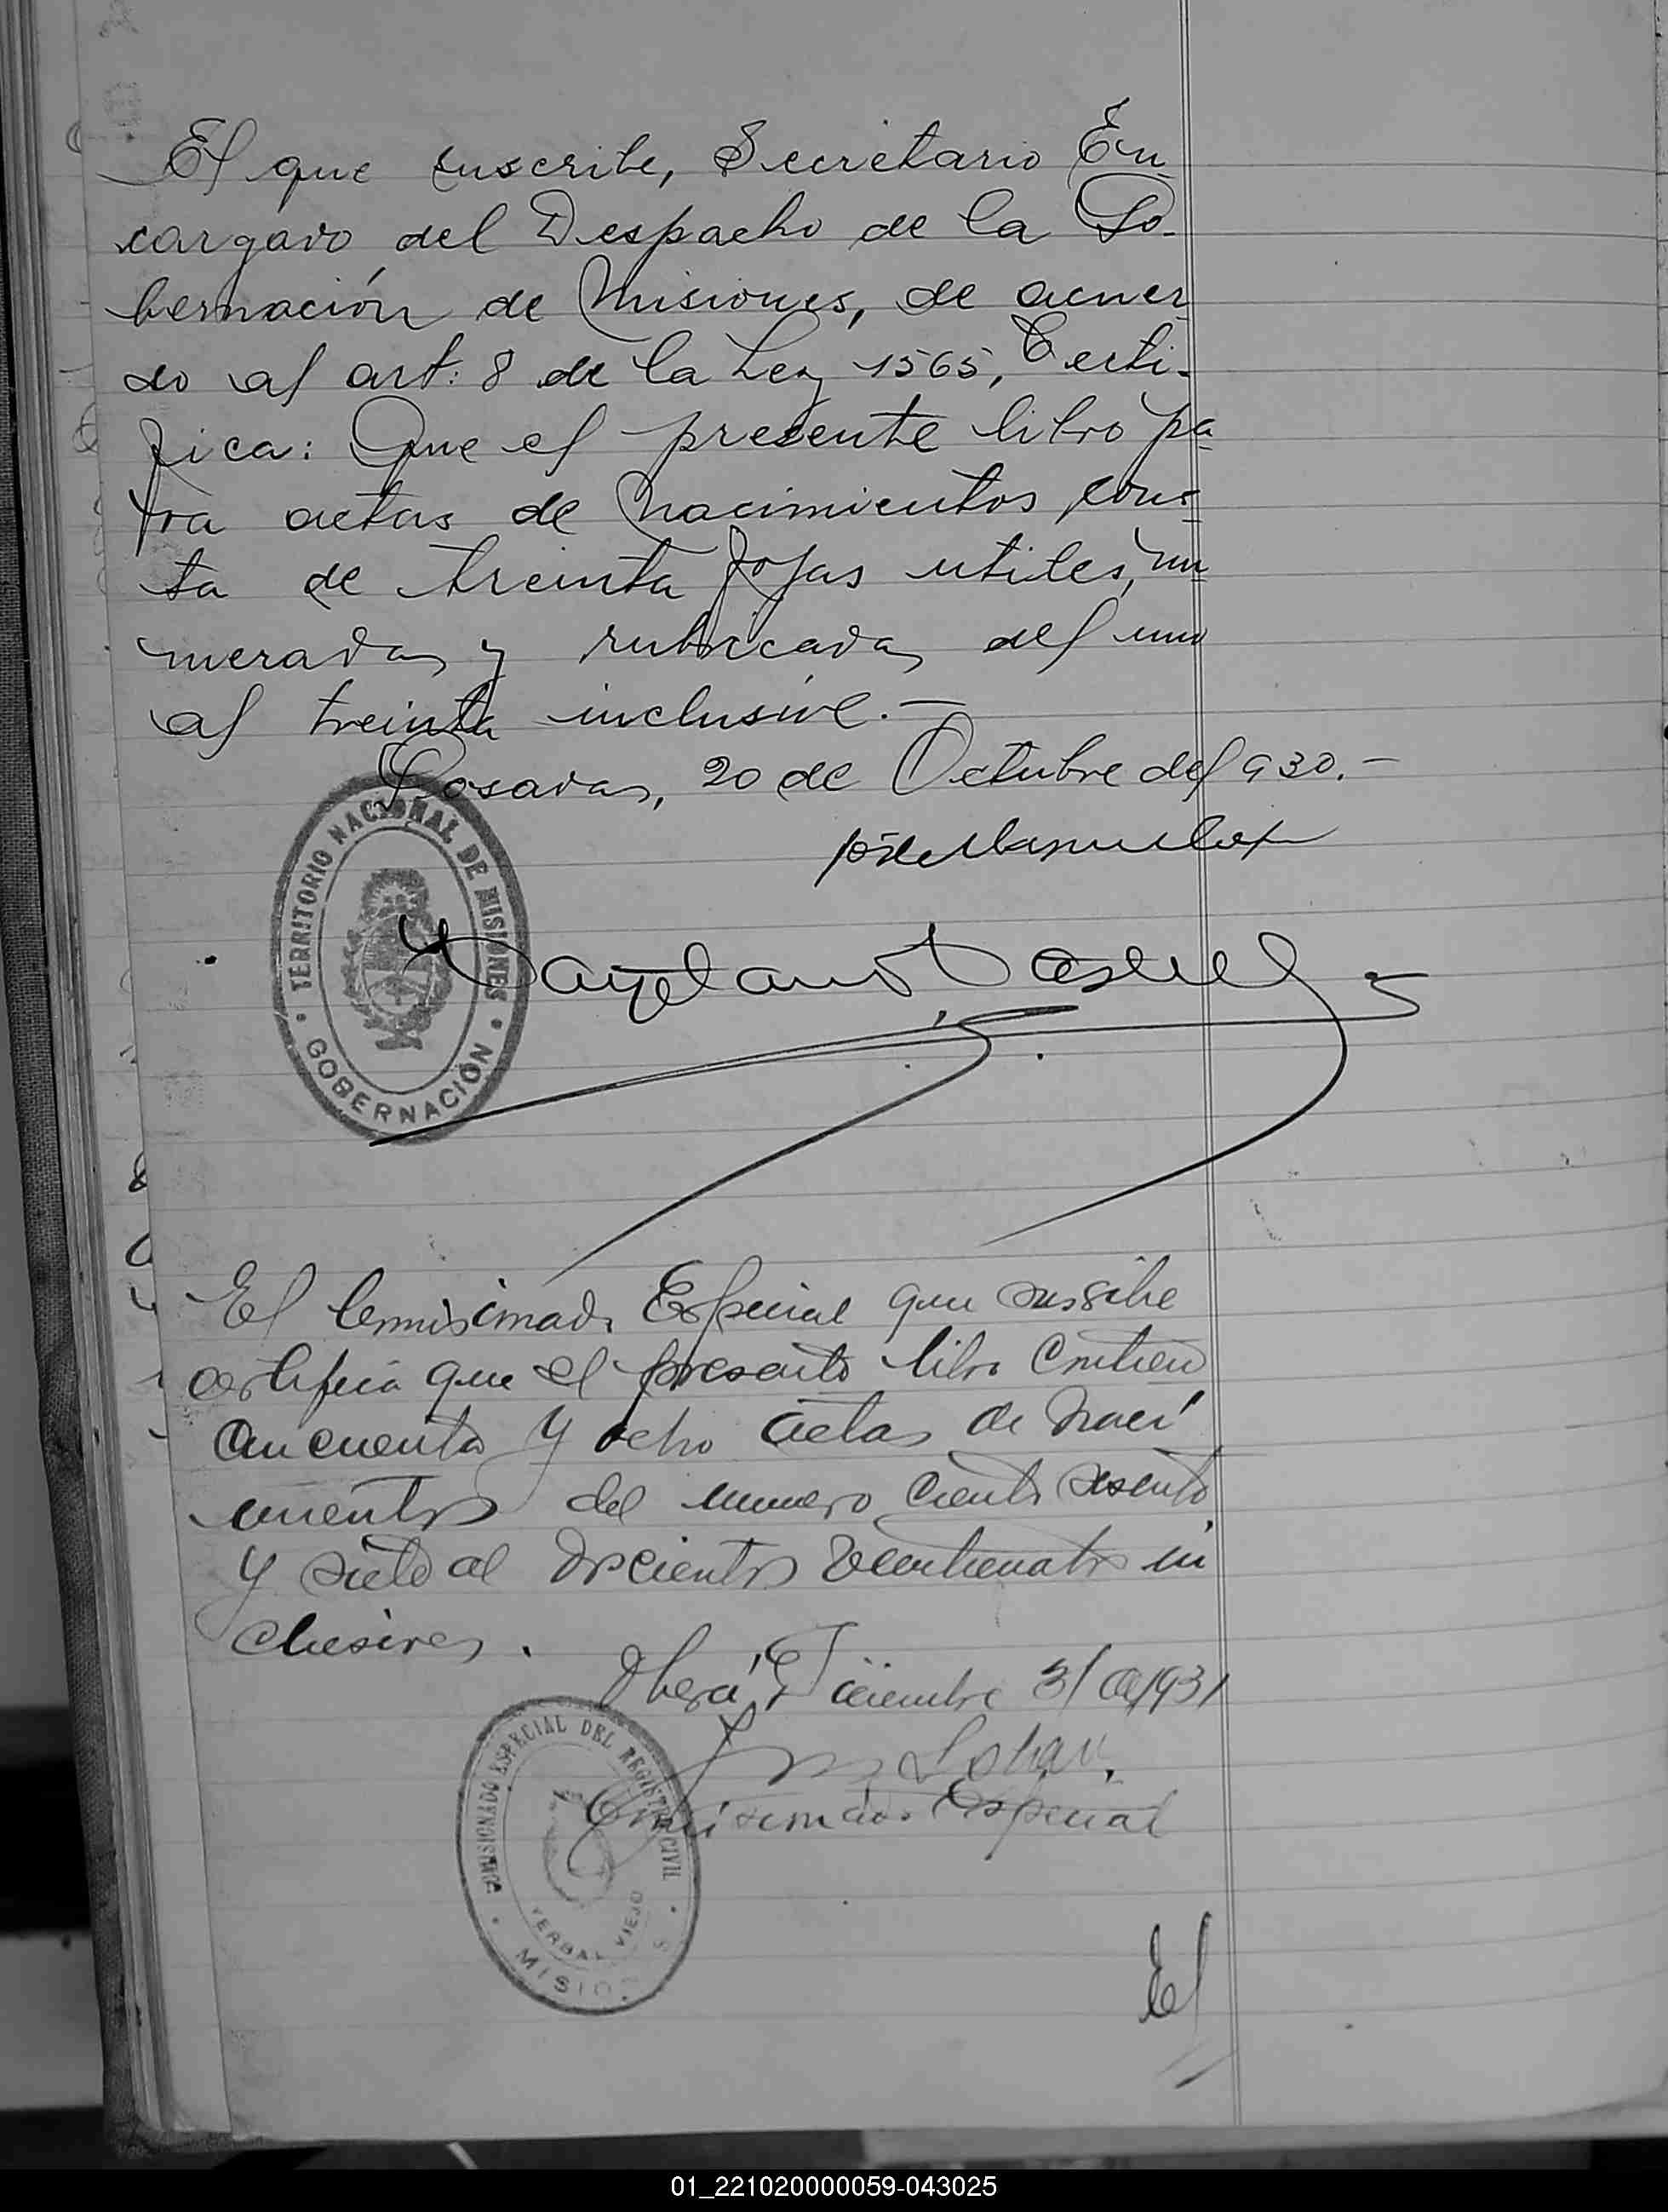 El que suscribe, Secretario En
cargado del Despacho de la Go-
bernación de Misiones, de acuer
do al art: 8 de la Ley 1565, Certi-
fica: Que el presente libro pa
ra actas de Nacimientos cons
ta de treinta fojas utiles, nu
meradas y rubricadas del uno
al treinta inclusive.-
Posadas, 20 de Octubre del 930.-
TERRITORIO NACIONAL DE MISIONES
GOBERNACIÓN
El Comisionado Especial que suscribe
certifica que el presente libro contiene
cincuenta y ocho actas de Naci
mientos del numero ciento sesenta
y siete al doscientos veinticuatro in
clusives.
Oberá, Diciembre 31 de 1931
Comisionado Especial
COMISIONADO ESPECIAL DEL REGISTRO CIVIL
YERBAL VIEJO
El
01_221020000059-043025